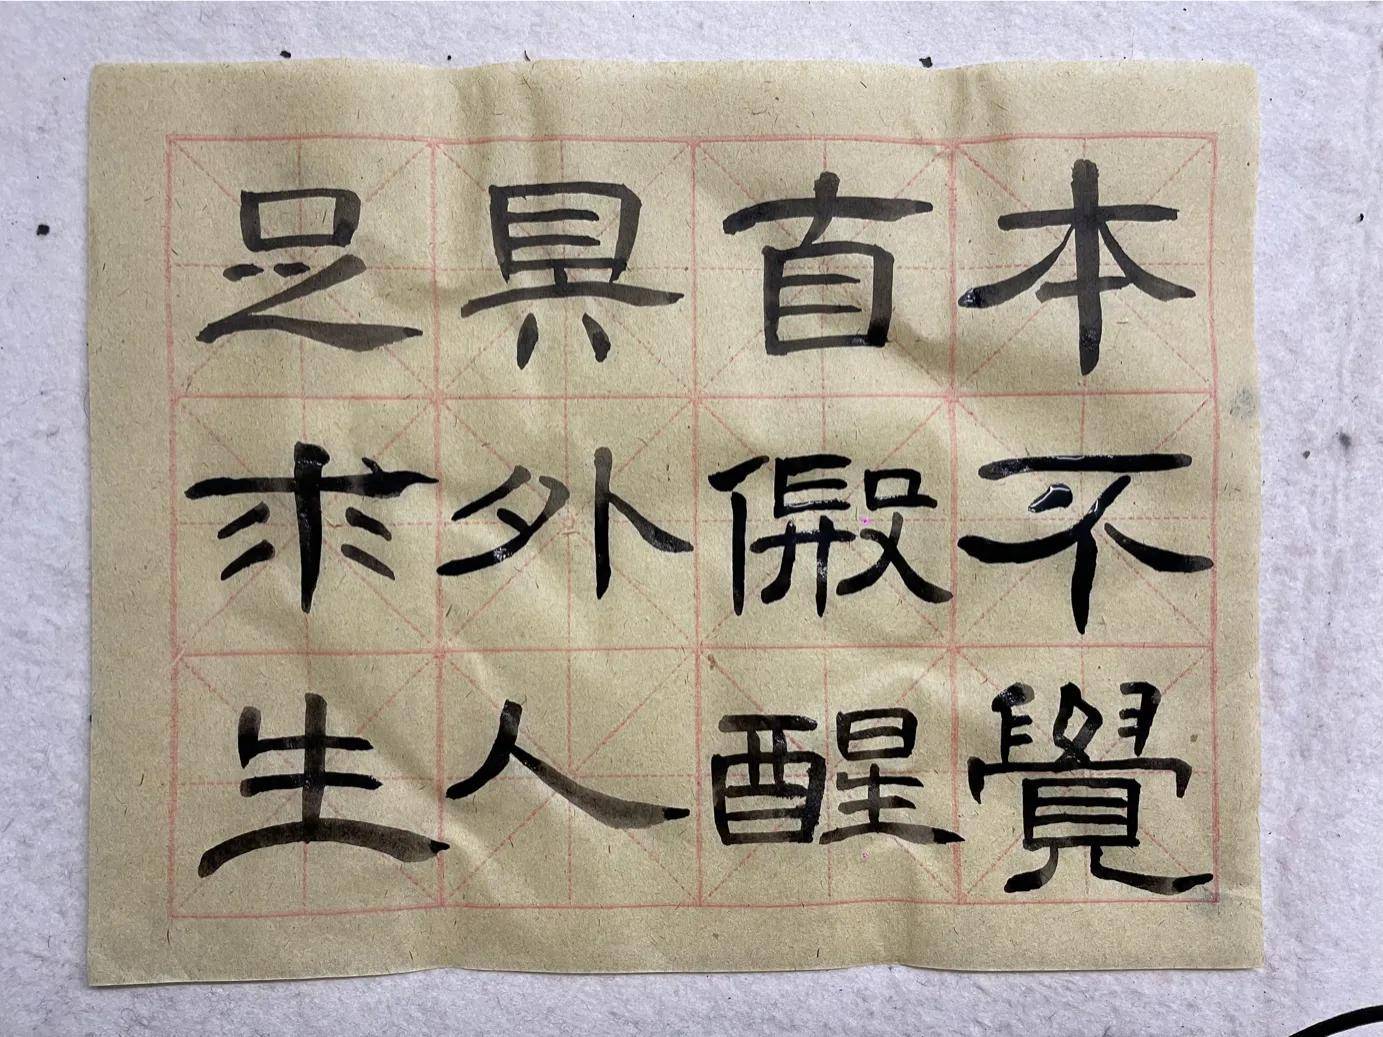 本自具足
不假外求
覺醒人生